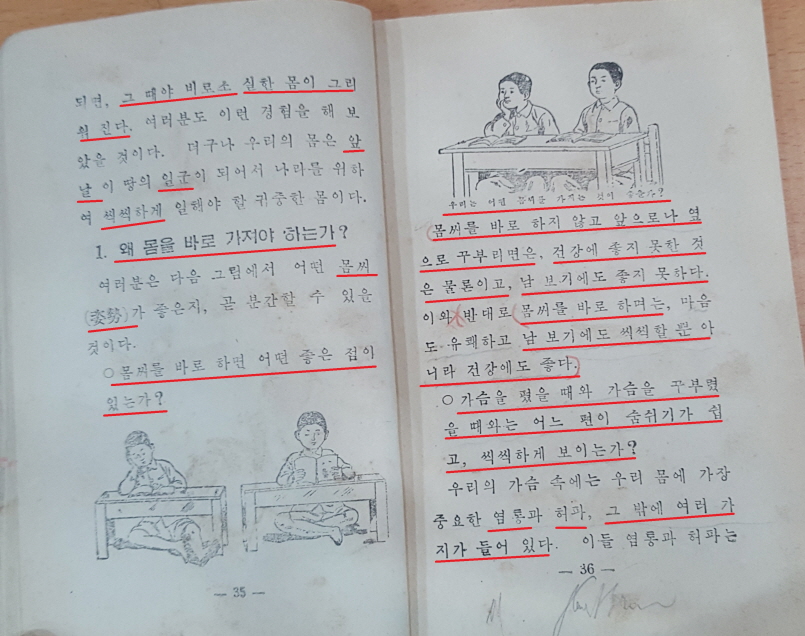 되면, 그 때야 비로소 실한 몸이 그리
워 진다. 여러분도 이런 경험을 해 보
았을 것이다. 더구나 우리의 몸은 앞
날 이 땅의 일군이 되어서 나라를 위하
여 씩씩하게 일해야 할 귀중한 몸이다.
1. 왜 몸을 바로 가져야 하는가?
여러분은 다음 그림에서 어떤 몸씨
(姿勢)가 좋은지, 곧 분간할 수 있을
것이다.
○ 몸씨를 바로 하면 어떤 좋은 점이
있는가?
— 35 —
우리는 어떤 몸씨를 가지는 것이 좋은가?
몸씨를 바로 하지 않고 앞으로나 옆
으로 꾸부리면은, 건강에 좋지 못한 것
은 물론이고, 남 보기에도 좋지 못하다.
이와 반대로 몸씨를 바로 하며는, 마음
도 유쾌하고 남 보기에도 씩씩할 뿐 아
니라 건강에도 좋다.
○ 가슴을 폈을 때와 가슴을 꾸부렸
을 때와는 어느 편이 숨쉬기가 쉽
고, 씩씩하게 보이는가?
우리의 가슴 속에는 우리 몸에 가장
중요한 염통과 허파, 그 밖에 여러 가
지가 들어 있다. 이들 염통과 허파는
— 36 —